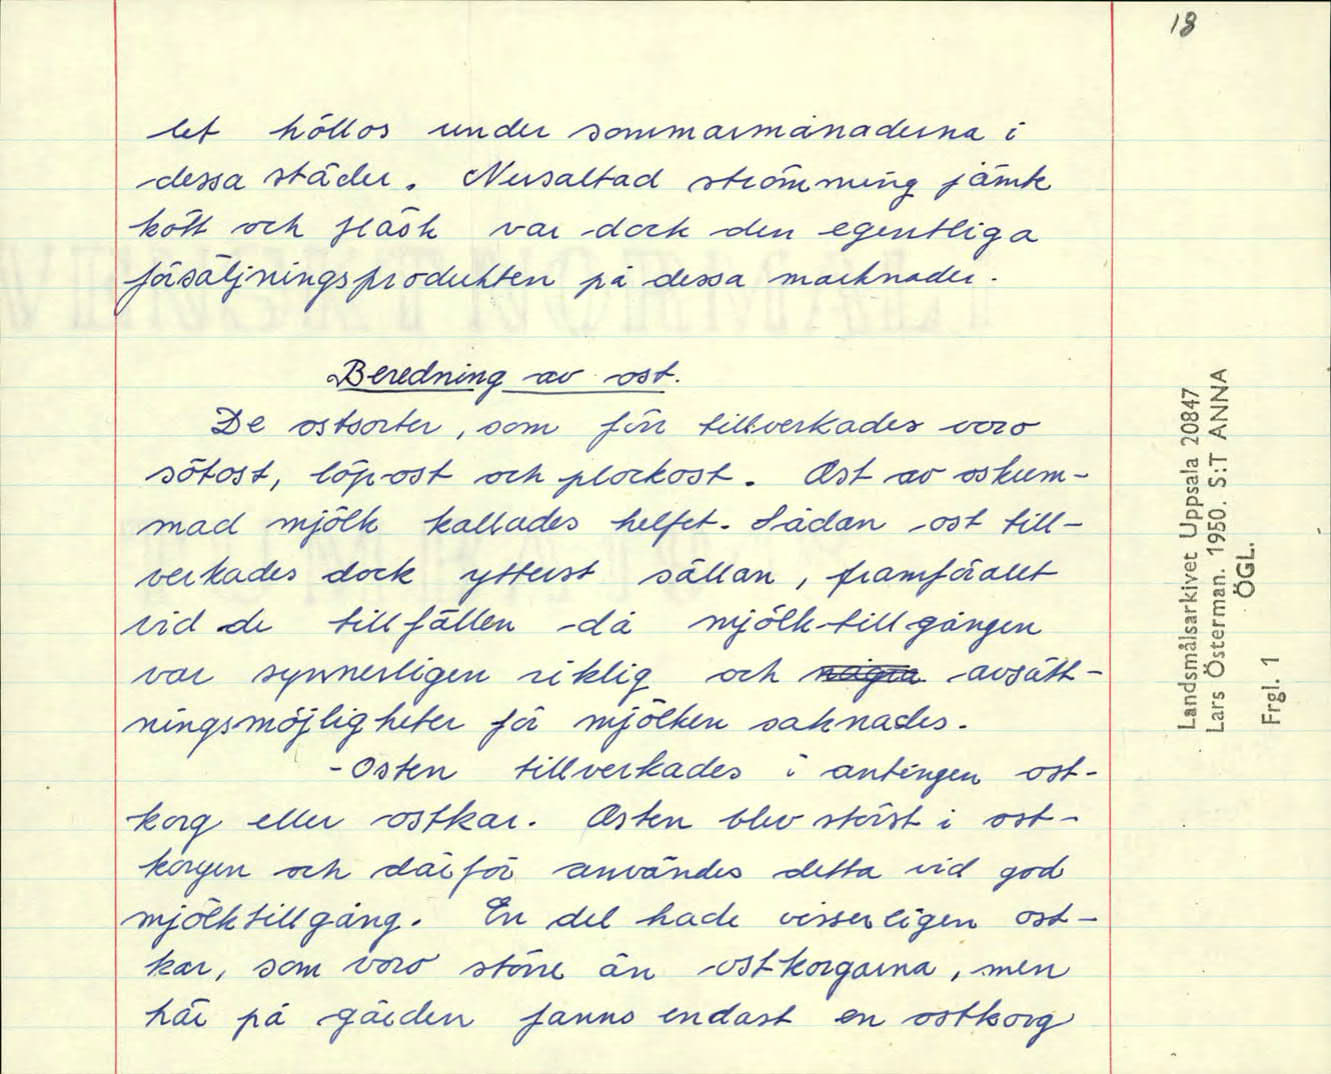 18
let höllos under sommarmånaderna i
dessa städer. Nersaltad strömming jämte
kött och fläsk var dock den egentliga
försäljningsprodukten på dessa marknader.
Beredning av ost.
De ostsorter, som förr tillverkades voro
sötost, löpost och plockost. Ost av oskum-
mad mjölk kallades helfet. Sådan ost till-
verkades dock ytterst sällan, framförallt
vid de tillfällen då mjölk-tillgången
var synnerligen riklig och några avsätt-
ningsmöjligheter för mjölken saknades.
Osten tillverkades i antingen ost-
korg eller ostkar. Osten blev störst i ost-
korgen och därför användes detta vid god
mjölktillgång. En del hade visserligen ost-
kar, som voro större än ostkorgarna, men
här på gården fanns endast en ostkorg
Landsmålsarkivet Uppsala 20847
Lars Österman. 1950. S:T ANNA
ÖGL.
Frgl. 1